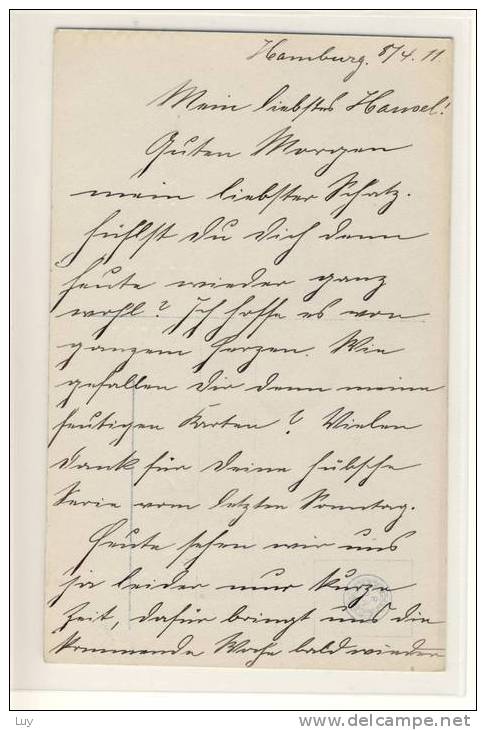 Hamburg. 8/4. 11.
Mein liebstes Hansel!
Guten Morgen
mein liebster Schatz.
fühlst du dich denn
heute wieder ganz
wohl? Ich hoffe es von
ganzem Herzen. Wie
gefallen dir denn meine
heutigen Karten? Vielen
Dank für deine hübsche
Serie vom letzten Sonntag.
Heute sehen wir uns
ja leider nur kurze
Zeit, dafür bringt uns die
kommende Woche bald wieder
Luy
http://www.delcampe.net